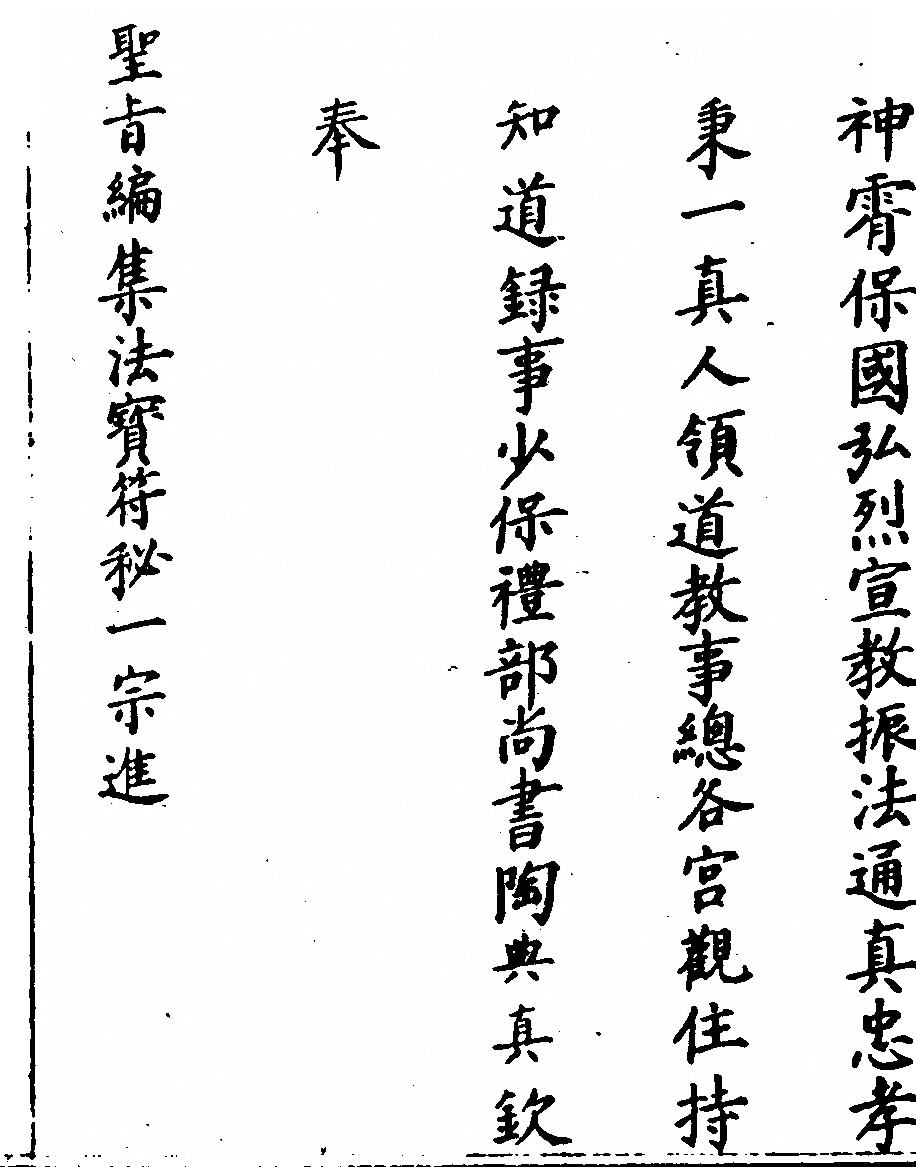 神霄保國弘烈宣教振法通真忠孝
秉一真人領道教事總各宮觀住持
知道録事少保禮部尚書陶典真欽
奉
聖旨編集法寳符秘一宗進